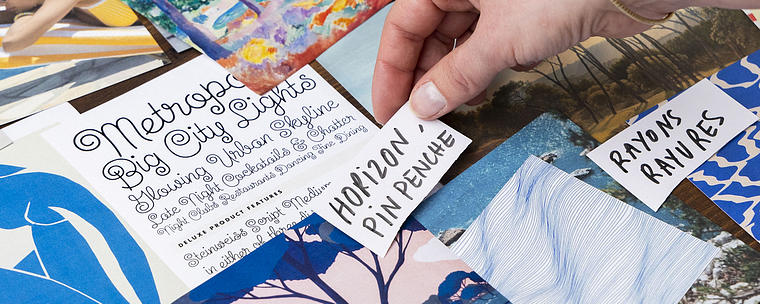 Metropo
Big City Lights
Glowing Urban Skyline
Late Night Cocktails & Chatter
Night Clubs Restaurants Dancing Fine Dining
DELUXE PRODUCT FEATURES
Steinweiss Script Medium
in either of
HORIZON,
PIN PENCHE
RAYONS
RAYURES